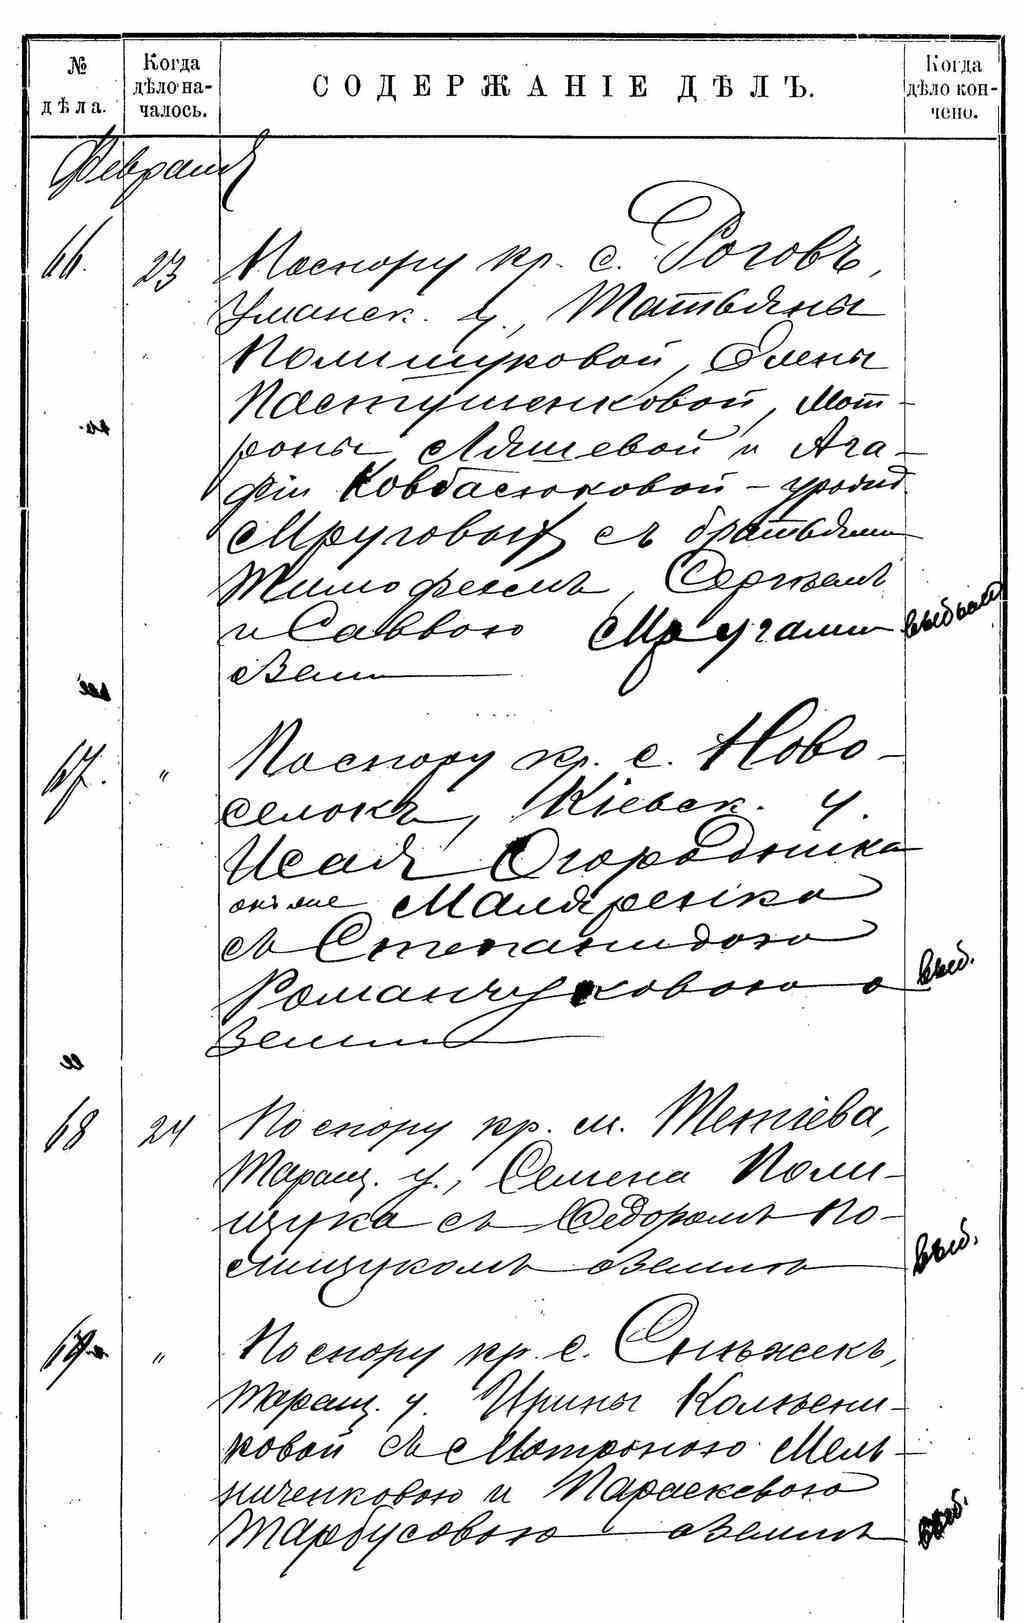 № дѣла.
Когда дѣло началось.
СОДЕРЖАНІЕ ДѢЛЪ.
Когда дѣло кончено.
Февраля
66. 23 По спору кр. с. Роговъ,
Уманск. у., Татьяны
Полишуковой, Елены
Пастушенковой, Мот-
роны Ляшевой и Ага-
фіи Ковбасюковой - урожд.
Мруговых съ братьями
Тимофеемъ, Сергѣемъ
и Саввою Мругами выбыл
о земли
67. " По спору кр. с. Ново-
селокъ, Кіевск. у.
Исая Огородника
онъ же Маляренко
съ Степанидою
Романчуковою о выб.
земли
68 24 По спору кр. м. Тетіева,
Таращ. у., Семена Поли-
щука съ Федоромъ По-
лищукомъ о земли выб.
69 " По спору кр. с. Снѣжекъ,
Таращ. у. Ирины Колѣсни-
ковой съ Мотроною Мель-
ниченковою и Параскевою
Тарбусовою о земли выб.